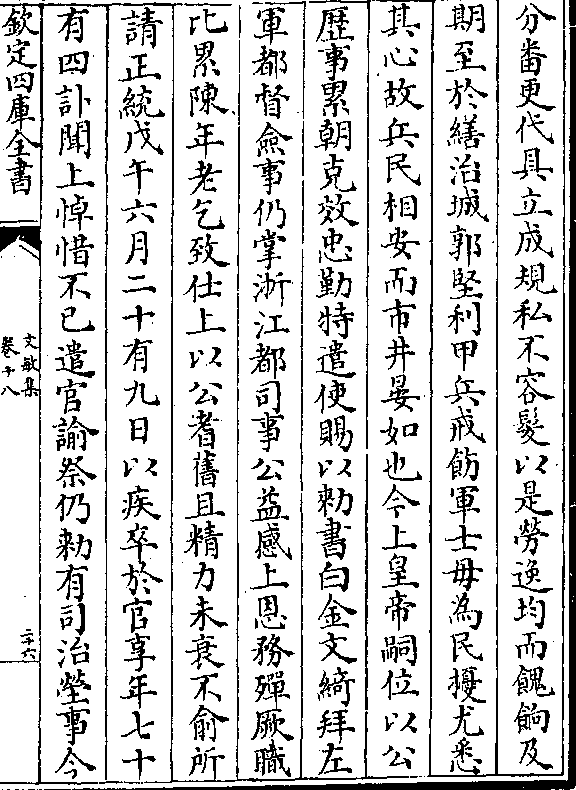 分番更代具立成規私不容髮以是勞逸均而餽餉及
期至於繕治城郭堅利甲兵戒飭軍士毋為民擾尤悉
其心故兵民相安而市井晏如也今上皇帝嗣位以公
歴事累朝克效忠勤特遣使賜以勅書白金文綺拜左
軍都督僉事仍掌浙江都司事公益感上恩務殫厥職
比累陳年老乞致仕上以公耆舊且精力未衰不俞所
請正統戊午六月二十有九日以疾卒於官享年七十
有四訃聞上悼惜不已遣官諭祭仍勅有司治塋事今
欽定四庫全書
文敏集
卷十八
二十六